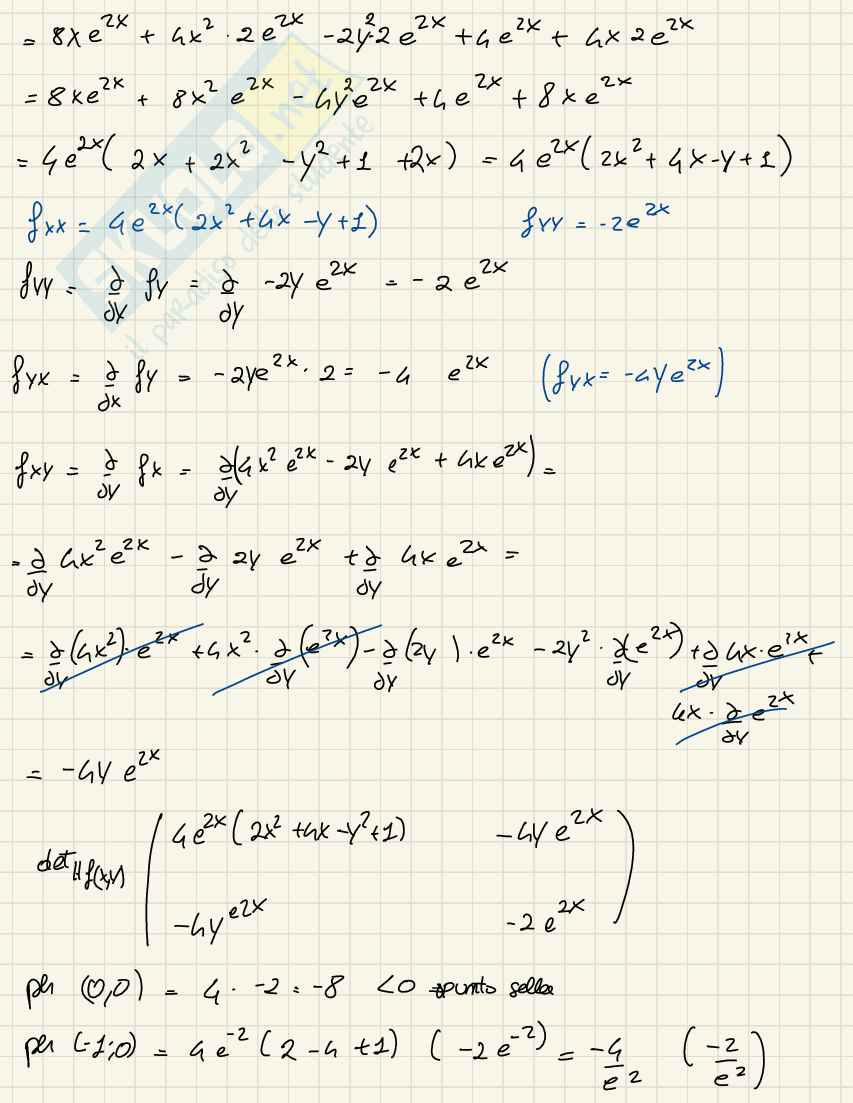 = 8xe^{2x} + 4x^2 · 2e^{2x} - 2y^2·2e^{2x} + 4e^{2x} + 4x 2e^{2x}
= 8xe^{2x} + 8x^2 e^{2x} - 4y^2 e^{2x} + 4e^{2x} + 8xe^{2x}
= 4e^{2x}( 2x + 2x^2 - y^2 + 1 + 2x) = 4e^{2x}(2x^2 + 4x - y + 1)
f_{xx} = 4e^{2x}(2x^2 + 4x - y + 1) f_{yy} = -2e^{2x}
f_{yy} = ∂/∂x f_y = ∂/∂y -2y e^{2x} = -2e^{2x}
f_{yx} = ∂/∂x f_y = -2ye^{2x} · 2 = -4 e^{2x} (f_{yx} = -4ye^{2x})
f_{xy} = ∂/∂y f_x = ∂/∂y(4x^2 e^{2x} - 2y e^{2x} + 4xe^{2x}) =
= ∂/∂y 4x^2 e^{2x} - ∂/∂y 2y e^{2x} + ∂/∂y 4x e^{2x} =
= ∂/∂y(4x^2)·e^{2x} + 4x^2 · ∂/∂y(e^{2x}) - ∂/∂y(2y)·e^{2x} - 2y^2 · ∂/∂y(e^{2x}) + ∂/∂y 4x·e^{2x} +
4x · ∂/∂y e^{2x}
= -4y e^{2x}
4e^{2x}(2x^2 + 4x - y^2 + 1) -4y e^{2x}
det Hf(x,y)
-4y^{e2x} -2e^{2x}
per (0,0) = 4 · -2 = -8 <0 → punto sella
per (-1;0) = 4e^{-2}(2 - 4 + 1) (-2e^{-2}) = -4/e^2 (-2/e^2)
SKUOLA.net
il paradiso dello studente